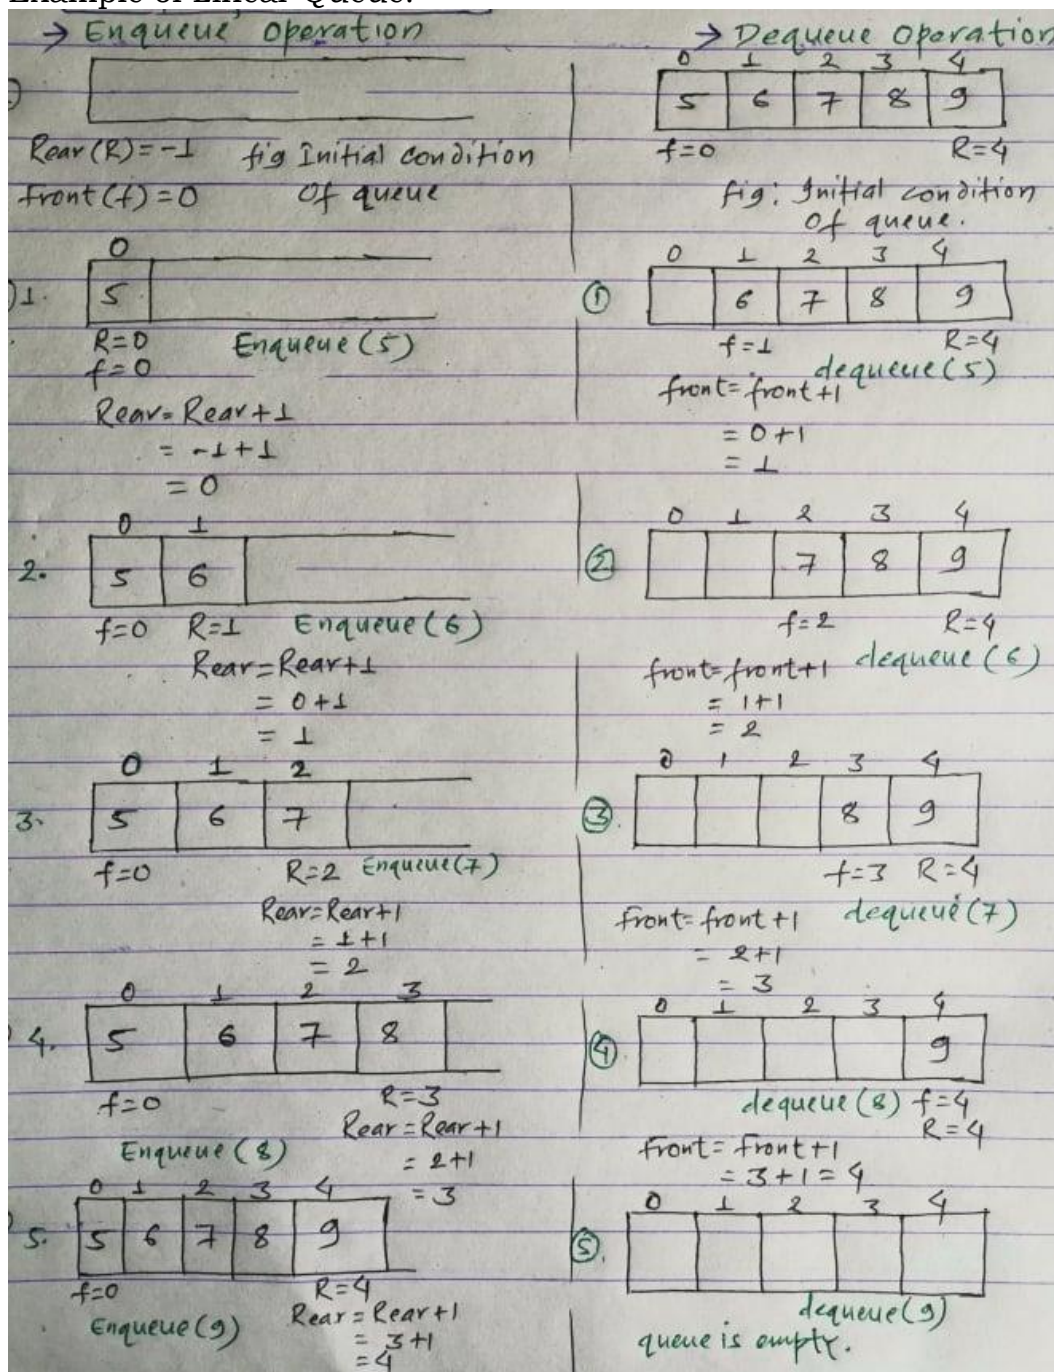 → Enqueue operation
Rear(R)=-1 fig Initial condition
front(f)=0 Of queue
0
1. 5
R=0 Enqueue(5)
f=0
Rear=Rear+1
= -1+1
= 0
0 1
2. 5 6
f=0 R=1 Enqueue(6)
Rear=Rear+1
= 0+1
= 1
0 1 2
3. 5 6 7
f=0 R=2 Enqueue(7)
Rear=Rear+1
= 1+1
= 2
0 1 2 3
4. 5 6 7 8
f=0 R=3
Rear=Rear+1
Enqueue(8) = 2+1
= 3
0 1 2 3 4
5. 5 6 7 8 9
f=0 R=4
Enqueue(9) Rear=Rear+1
= 3+1
=4
→ Dequeue Operation
0 1 2 3 4
5 6 7 8 9
f=0 R=4
fig: Initial condition
Of queue.
0 1 2 3 4
① 6 7 8 9
f=1 R=4
dequeue(5)
front=front+1
= 0+1
= 1
0 1 2 3 4
② 7 8 9
f=2 R=4
front=front+1 dequeue(6)
= 1+1
= 2
0 1 2 3 4
③. 8 9
f=3 R=4
front=front+1 dequeue(7)
= 2+1
= 3
0 1 2 3 4
④ 9
dequeue(8) f=4
R=4
front=front+1
= 3+1=4
0 1 2 3 4
⑤.
dequeue(9)
queue is empty.